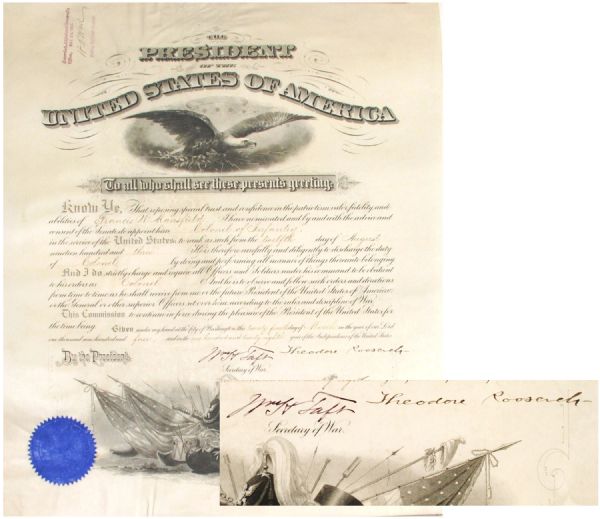 THE
PRESIDENT
OF THE
UNITED STATES OF AMERICA
To all who shall see these presents greeting:
Know Ye, That reposing special trust and confidence in the patriotism, valor, fidelity and
abilities of Francis W. Mansfield I have nominated and by and with the advice and
consent of the Senate do appoint him Colonel of Infantry
in the service of the United States: to rank as such from the twelfth day of August
nineteen hundred and three He is therefore carefully and diligently to discharge the duty
of Colonel by doing and performing all manner of things thereunto belonging.
And I do strictly charge and require all Officers and Soldiers under his command to be obedient
to his orders as Colonel And he is to observe and follow such orders and directions
from time to time as he shall receive from me or the future President of the United States of America,
or the General or other superior Officers set over him according to the rules and discipline of War.
This Commission to continue in force during the pleasure of the President of the United States for
the time being.
Given under my hand at the City of Washington this day of March in the year of our Lord
one thousand nine hundred and four, and in the one hundred and twenty eighth year of the Independence of the United States.
By the President:
Wm H Taft Theodore Roosevelt
Secretary of War.
Wm H Taft Theodore Roosevelt
Secretary of War.